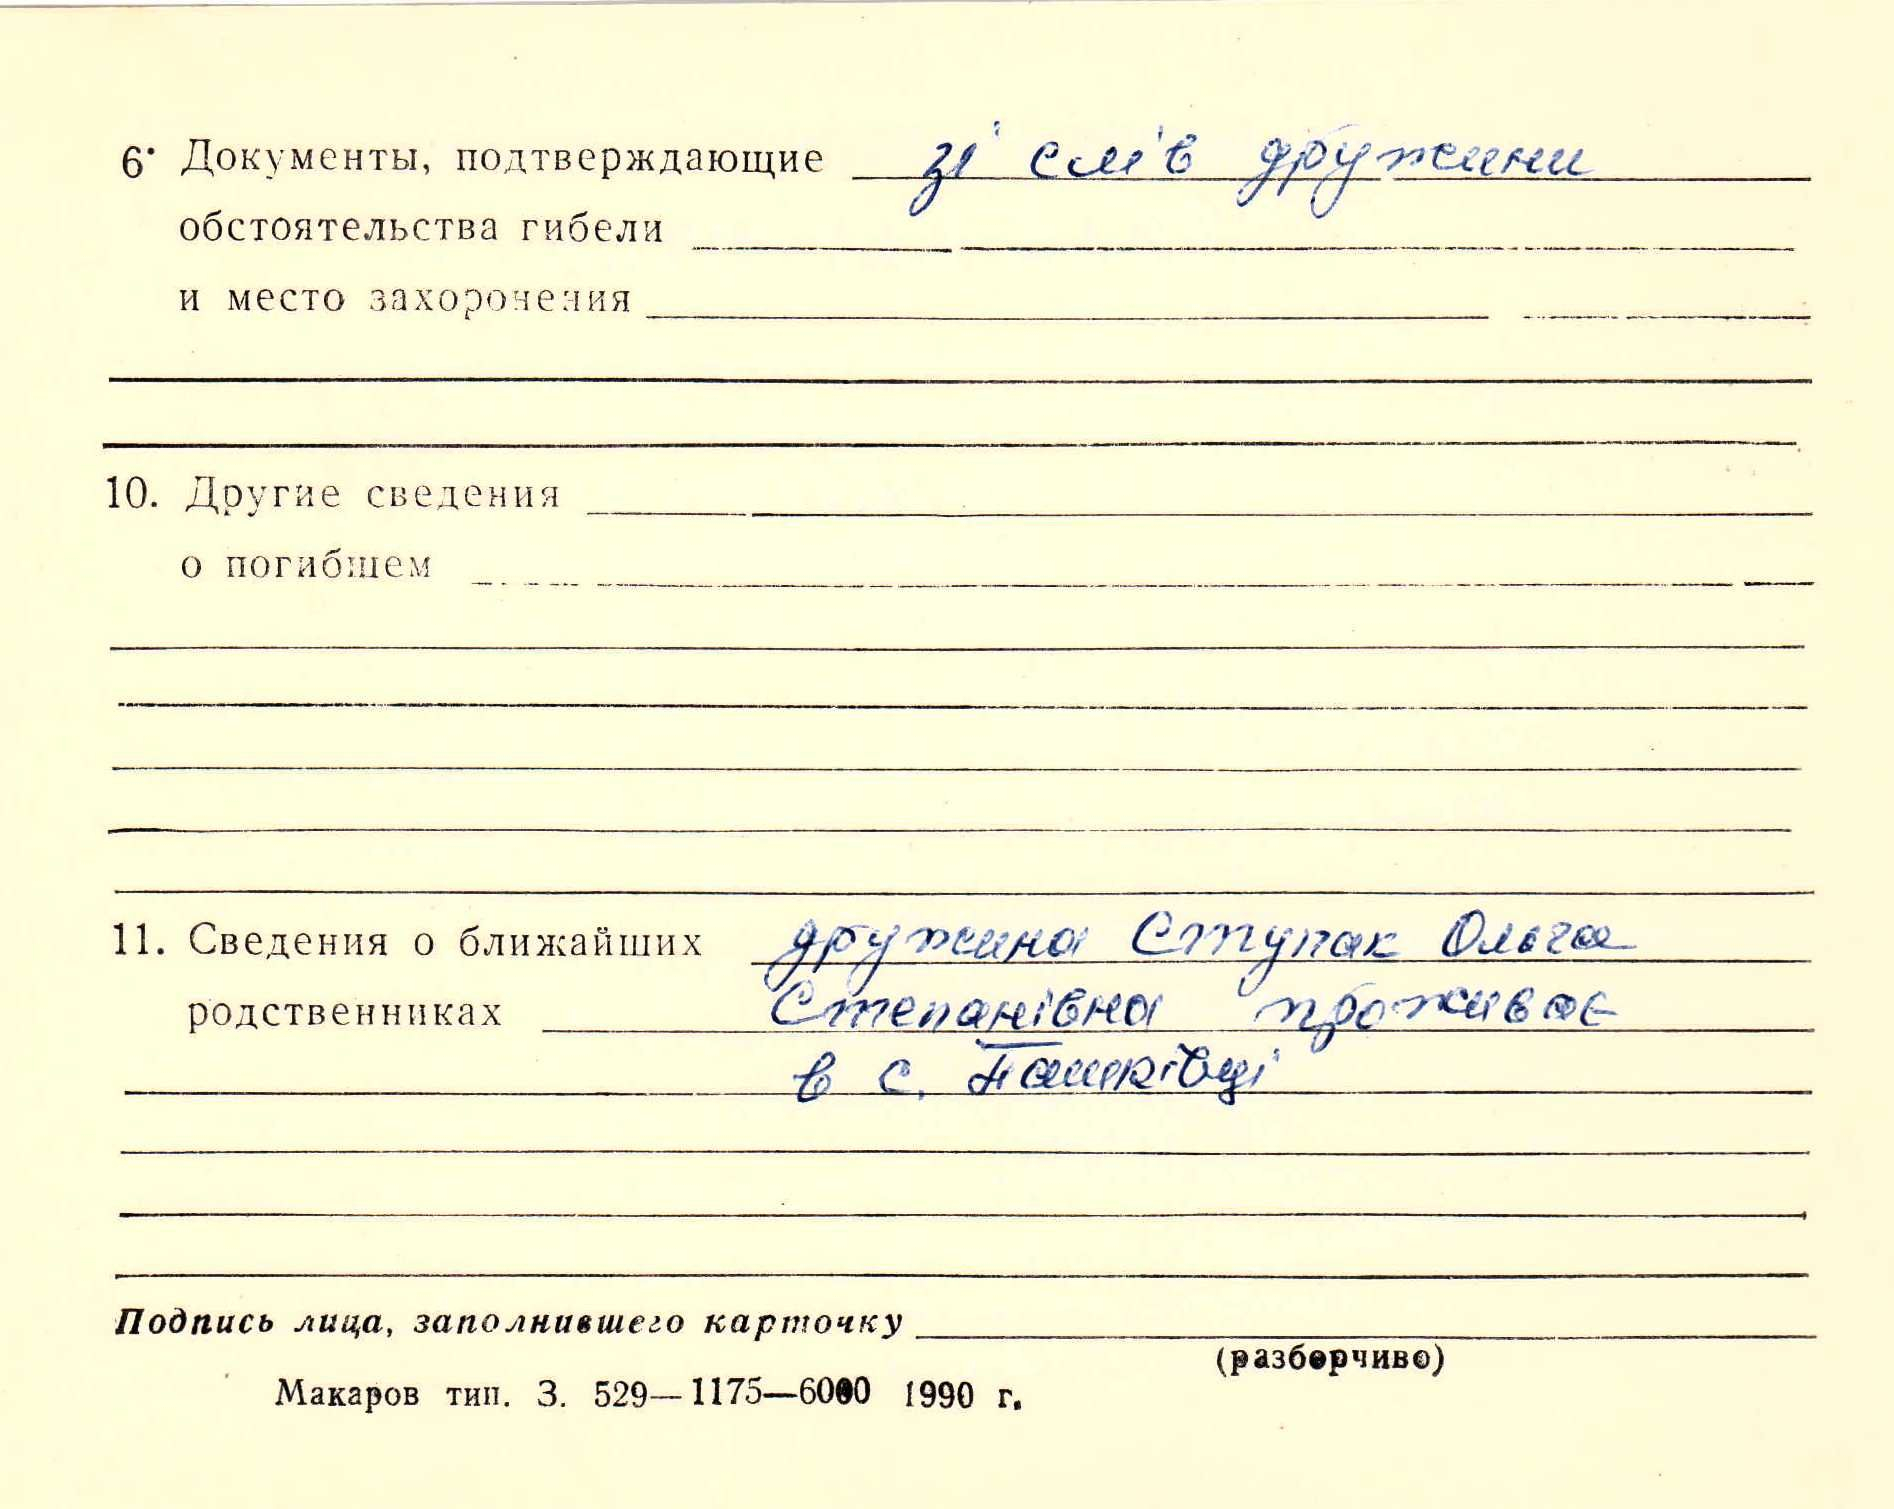 6. Документы, подтверждающие зі слів дружини
обстоятельства гибели
и место захоронения
10. Другие сведения
о погибшем
11. Сведения о ближайших дружина Ступак Ольга
родственниках Степанівна проживає
в с. Пашківці
Подпись лица, заполнившего карточку
(разборчиво)
Макаров тип. З. 529—1175—6000 1990 г.